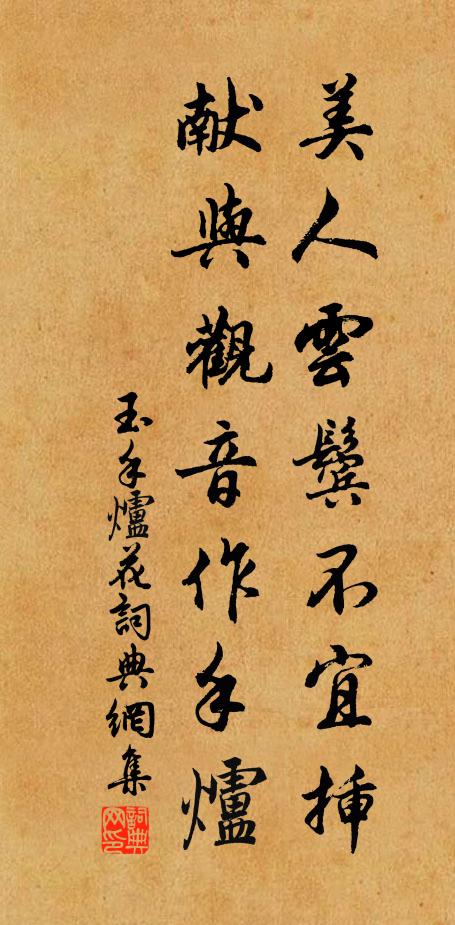 美人雲鬓不宜插
献與觀音作手爐
玉手爐花詞典網集
詞典网印